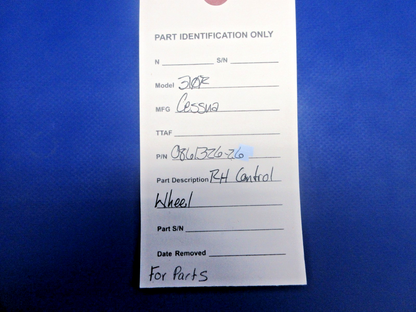 PART IDENTIFICATION ONLY
N S/N
Model 310R
MFG Cessna
TTAF
P/N 0861326-26
Part Description RH Control
Wheel
Part S/N
Date Removed
For Parts